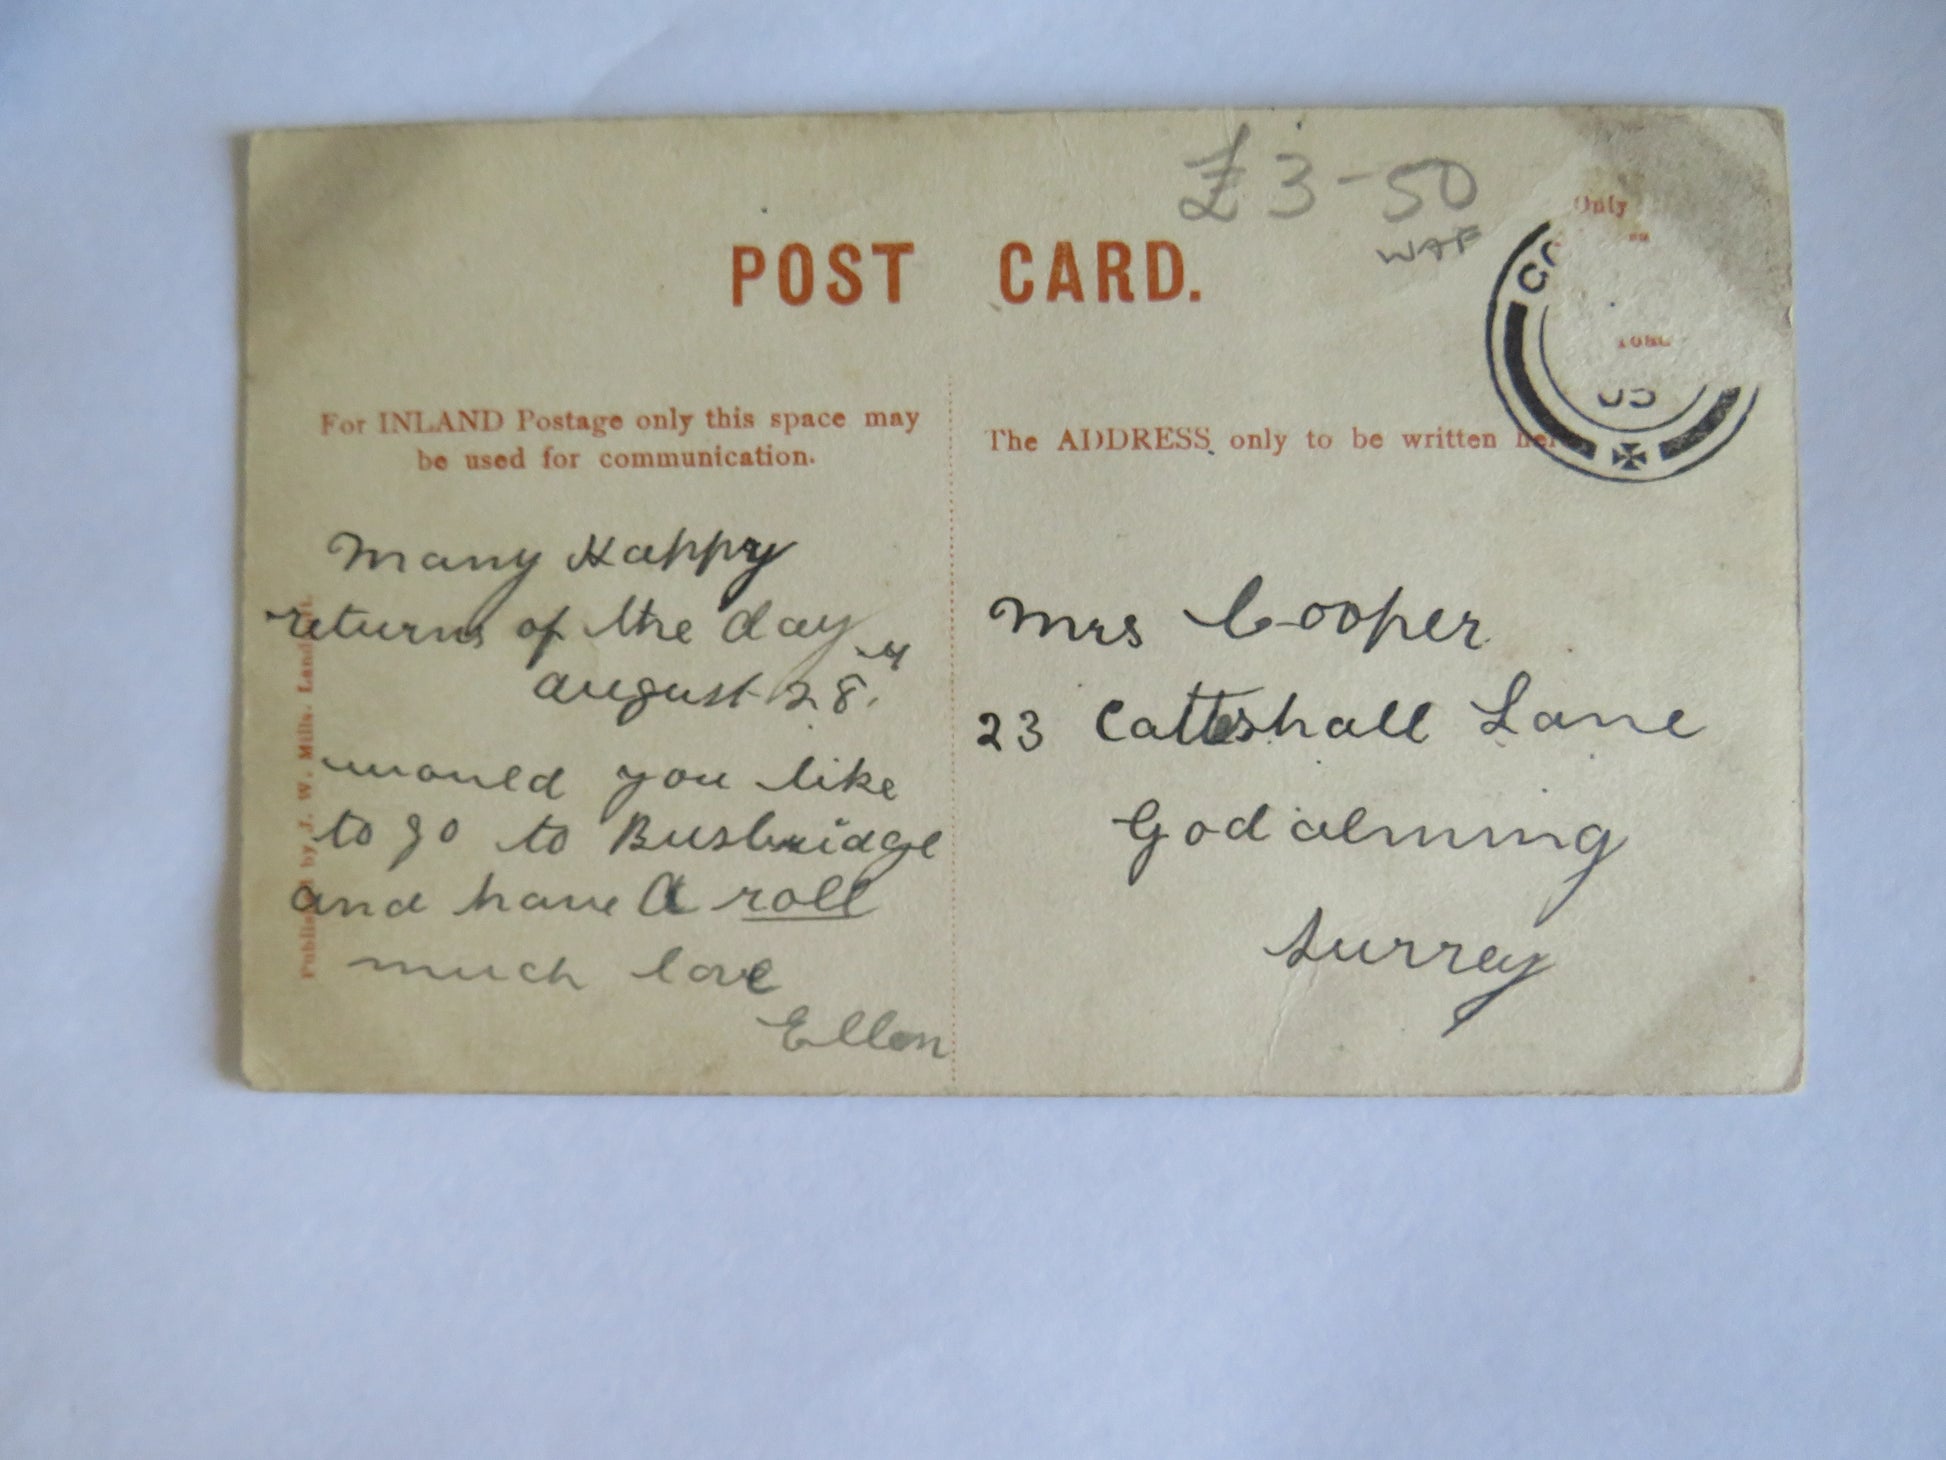 £3-50
WAF
Only
POST CARD.
05
For INLAND Postage only this space may
be used for communication.
The ADDRESS only to be written
Many Happy
returns of the day
august 28th
would you like
to go to Busbridge
and have a roll
much love
Ellen
Mrs Cooper
23 Catteshall Lane
Godalming
Surrey
Published by J. W. Mills.